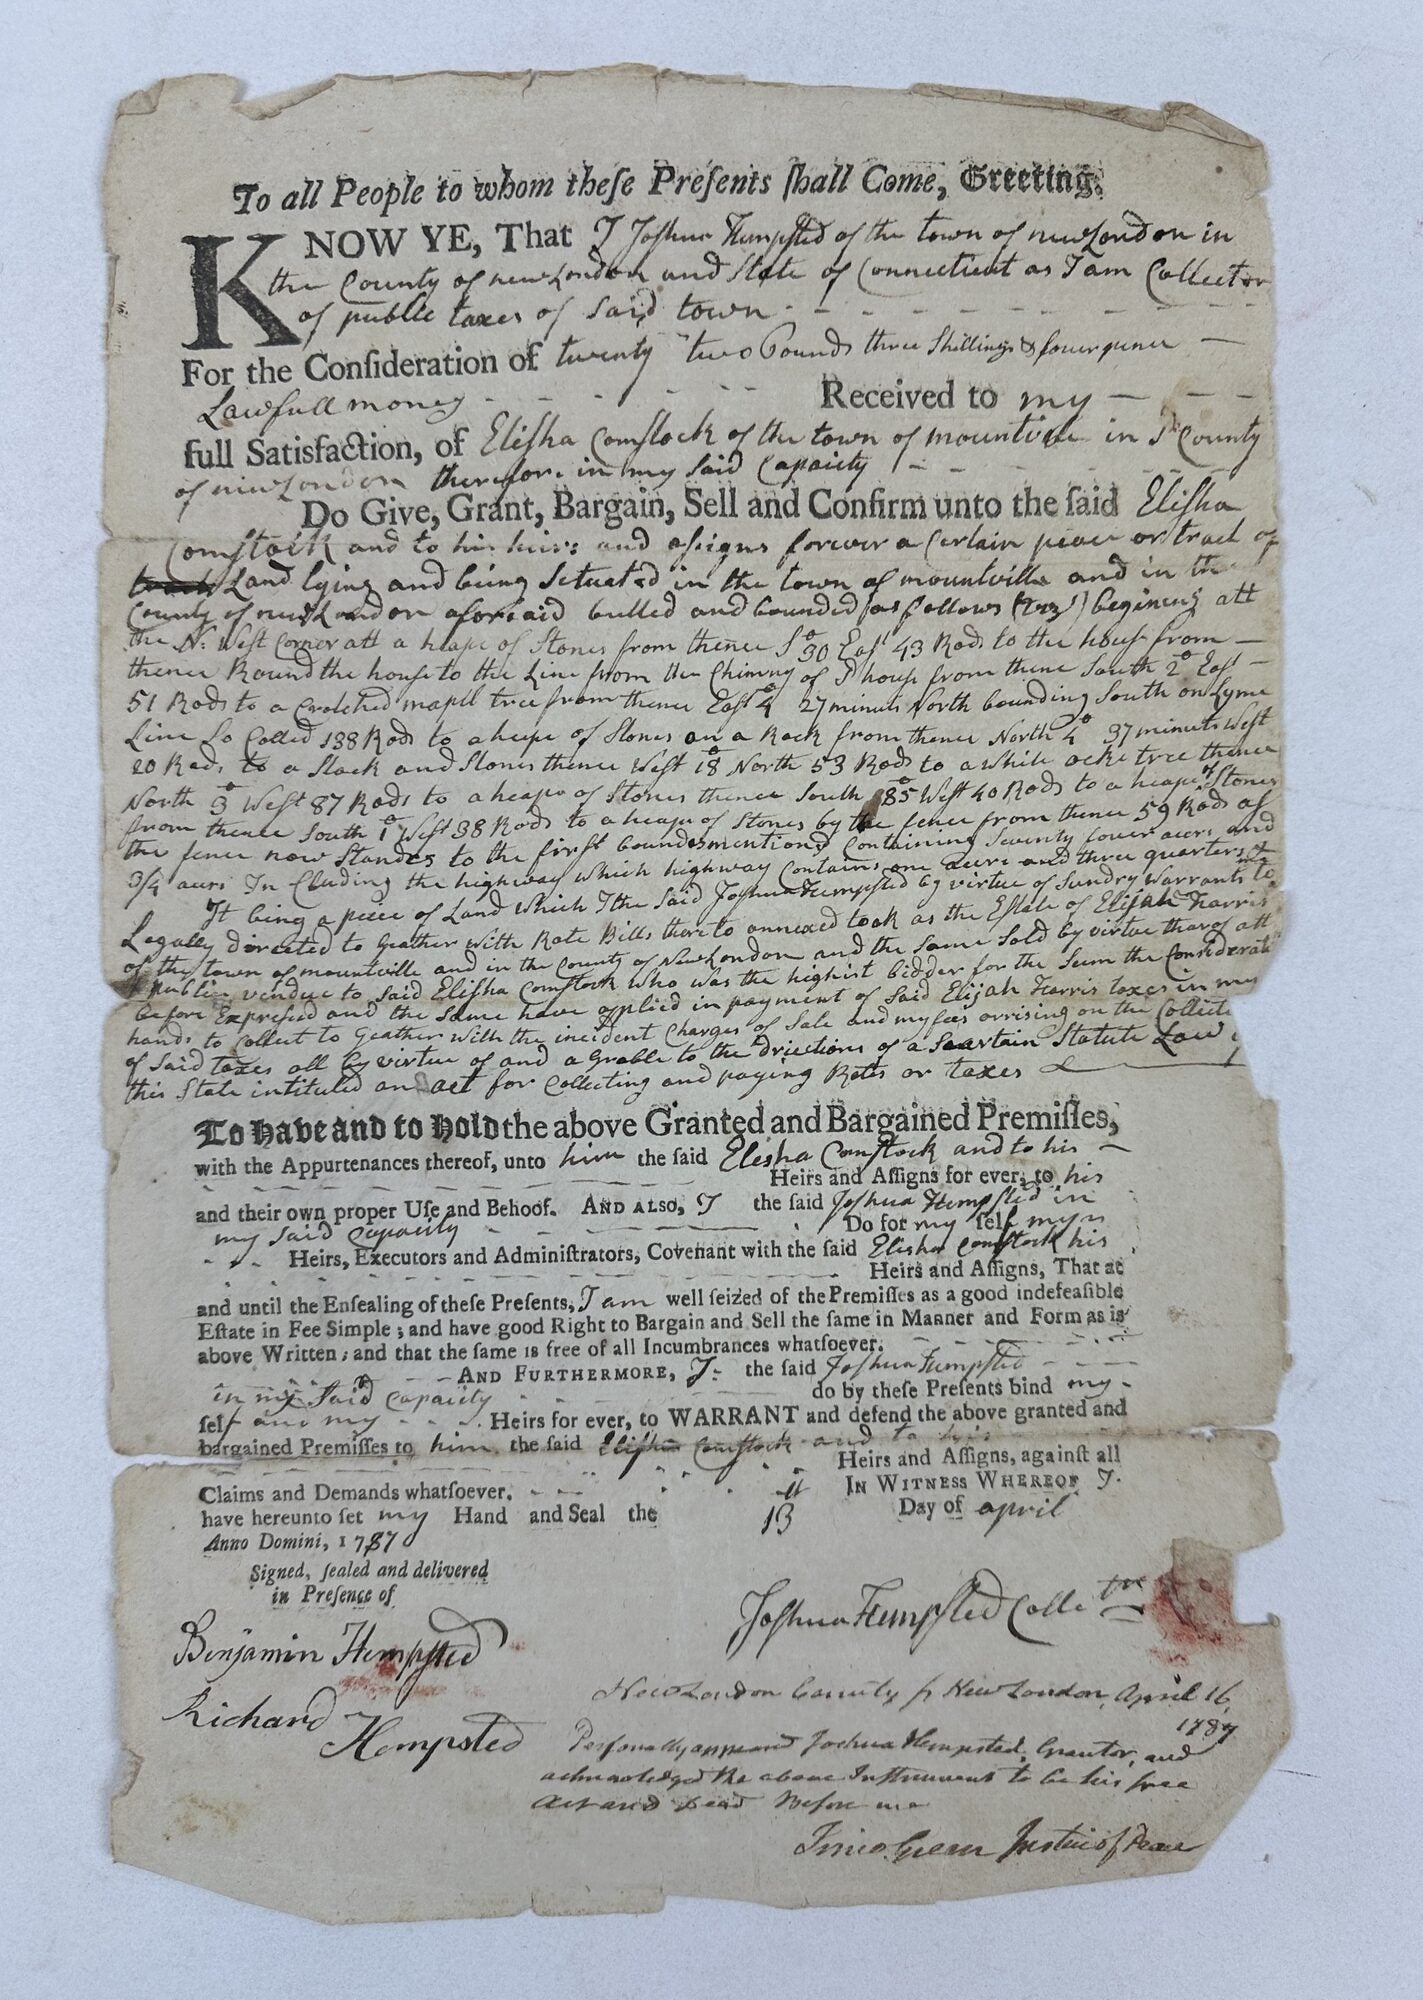 To all People to whom theſe Preſents ſhall Come, Greeting.
KNOW YE, That I Joſhua Hempſted of the town of newLondon in
the County of newLondon and State of Connecticut as I am Collector
of publick taxes of Said town
For the Conſideration of twenty two Pounds three Shillings & fourpence
Lawfull money Received to my
full Satisfaction, of Eliſha Comſtock of the town of mountville in sd County
of newLondon therefore in my Said Capacity
Do Give, Grant, Bargain, Sell and Confirm unto the ſaid Eliſha
Comſtock and to his heirs and aſsigns forever a Certain peace or tract of
Land lying and being Setuated in the town of mountville and in the
County of newLondon aforesaid butted and bounded as follows (viz) begining att
the N: West Corner att a heape of Stones from thence So 30 Eaſt 43 Rods to the house from
thence Round the house to the Line from the Chimny of sd house from thence South 2o Eaſt
51 Rods to a Crotched mapll tree from thence Eaſt 4o 27 minuts North bounding South on Lyme
Line So Called 138 Rods to a heape of Stones on a Rock from thence North 4o 37 minuts West
20 Rods to a Stack and Stones thence Weſt 18o North 53 Rods to a white oake tree thence
North 3o Weſt 87 Rods to a heape of Stones thence South 85o West 40 Rods to a heape of Stones
from thence South 1o Weſt 38 Rods to a heape of Stones by the fence from thence 59 Rods as
the fence now Standes to the firſt boundsmentiond Containing Seventy fouer acers and
3/4 acers In Cluding the highway which highway Contains one acre and three quarters
It being a piece of Land which I the Said Joſhua Hempſted by virtue of Sundry Warrants to me
Legally directed to Geather with Rate Bills thereto annexed took as the Eſtate of Elijah Harris
of the town of mountville and in the County of New London and the Same Sold by virtue thereof att
a publick vendue to Said Eliſha Comſtock who was the higheſt bidder for the Sum the Considerati
before Expreſsed and the Same have applied in payment of Said Elijah Harris taxes in my
hands to Collect to Geather with the incident Charges of Sale and my fees arrising on the Collecti
of Said taxes all by virtue of and agreable to the driections of a Scartain Statute Law of
this State intituled an act for Collecting and paying Rates or taxes
To have and to hold the above Granted and Bargained Premiſſes,
with the Appurtenances thereof, unto him the ſaid Elesha Comſtock and to his
Heirs and Aſſigns for ever, to his
and their own proper Uſe and Behoof. AND ALSO, I the ſaid Joſhua Hempſted in
my Said Capacity Do for my ſelf my
Heirs, Executors and Adminiſtrators, Covenant with the ſaid Elisha Comſtock his
Heirs and Aſſigns, That at
and until the Enſealing of theſe Preſents, I am well ſeized of the Premiſſes as a good indefeaſible
Eſtate in Fee Simple; and have good Right to Bargain and Sell the ſame in Manner and Form as is
above Written; and that the ſame is free of all Incumbrances whatſoever.
AND FURTHERMORE, I the ſaid Joſhua Hempſted
in my Said Capacity do by theſe Preſents bind my
ſelf and my Heirs for ever, to WARRANT and defend the above granted and
bargained Premiſſes to him the ſaid Eliſha Comſtock and to his
Heirs and Aſſigns, againſt all
Claims and Demands whatſoever. IN WITNESS WHEREOF I
have hereunto ſet my Hand and Seal the 13 Day of april
Anno Domini, 1787
Signed, ſealed and delivered
in Preſence of
Joſhua Hempſted Collector
Benjamin Hempsted
Richard Hempsted
New London County ſs New London, April 16
1787
Perſonally appeared Joshua Hempsted, Grantor, and
acknowledged the above Instrument to be his free
Act and Dead Before me
Green Justice of Peace